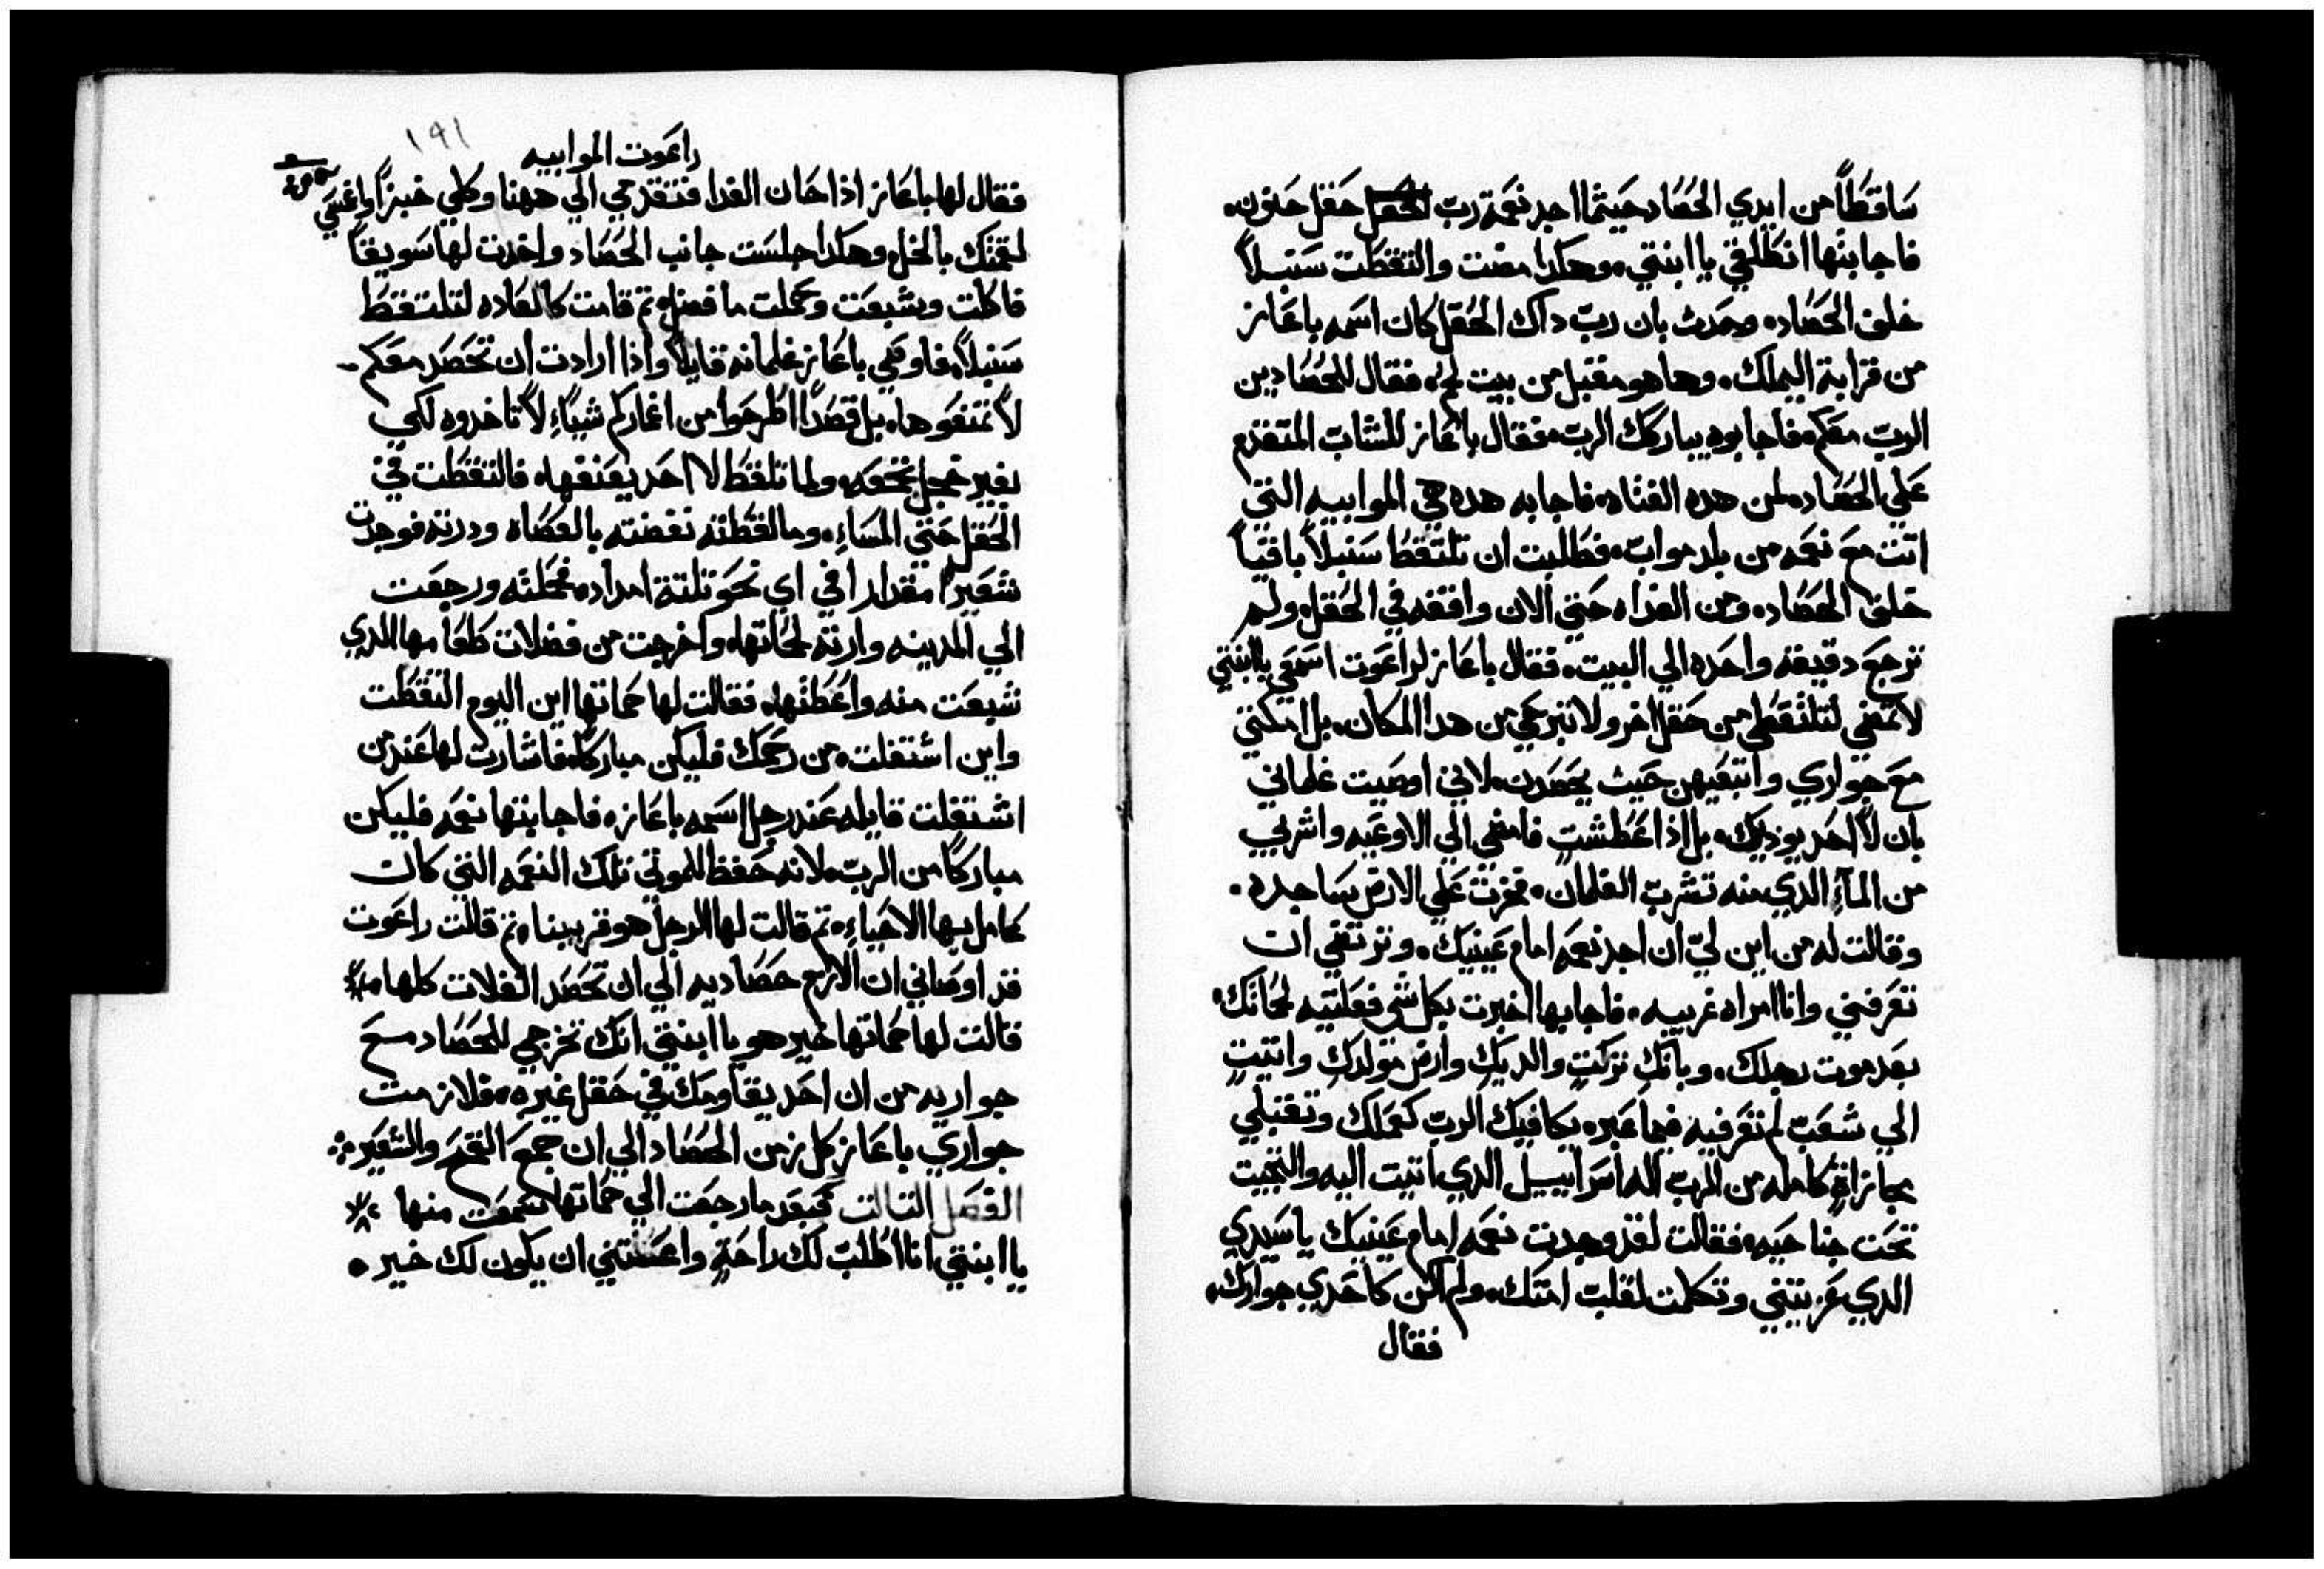 ساقطاً من ايدي الحصاد حيتما اجد نعمة رب الحقل حقل حنون.
فاجابتها انطلقي يا ابنتي. وهكدا مضت والتقطت سنبلاً
خلف الحصاد. وحدث بان رب داك الحقل كان اسمه باعاز
من قرابة اليملك. وها هو مقبل من بيت لحم. فقال للحصادين
الرب معكم. فاجابوه يباركك الرب. فقال باعاز للشاب المتقدم
علي الحصاد. لمن هده الفتاه. فاجابه هده هي الموابيه التي
اتت مع نعمه من بلد مواب. فطلبت ان تلتقط سنبلاً باقياً
خلف الحصاد. ومن الغدا. حتي الان واقفه في الحقل. ولم
ترجع دقيقه واحده الي البيت. فقال باعاز لراعوت اسمعي يا ابنتي
لا تمضي لتلتقطي من حقل اخر ولا تبرحي من هدا المكان. بل امكتي
مع جواري واتبعيهن حيت يحصدن. لاني اوصيت غلماني
بان لا احد يوديك. بل اذا عطشتِ فامضي الي الاوعيه واشربي
من المآءِ الدي منه تشرب الغلمان. فخرت علي الارض ساجده.
وقالت له من اين لي ان اجد نعمه امام عينيك. وترتضي ان
تعرفني وانا امراه غريبه. فاجابها اخبرت بكل شي فعلتيه لحماتك.
بعد موت رجلك. وبانكِ تركتِ والديكِ وارض مولدكِ واتيتِ
الي شعب لم تعرفيه فيما عبر. يكافيك الرب كعملك وتقبلي
مجازاةٍ كامله من الرب اله اسرائيل الدي اتيت اليه والتجيت
تحت جناحيه. فقالت لقد وجدت نعمه امام عينيك يا سيدي
الدي عزيتني وتكلمت لقلب امتك. ولم اكن كاحدي جوارك.
فقال
راعوت الموابيه
١٩١
فقال لها باعاز اذا حان الغدا فتقدمي الي ههنا وكلي خبزاً واغمسي
لقمتك بالخل. وهكدا جلست جانب الحصاد واخدت لها سويقاً
فاكلت وشبعت وحملت ما فضل. تم قامت كالعاده لتلتقط
سنبلاً. فاوصي باعاز غلمانه قايلاً واذا ارادت ان تحصد معكم
لا تمنعوها. بل قصداً اطرحوا من اغماركم شيئاً لا تاخدوه لكي
بغير خجل تجمعه. ولما تلقط لا احد يعنفها. فالتقطت في
الحقل حتي المساءِ. وما لقطته نفضته بالعصاه ودرته فوجدت
شعيراً مقدار افي اي نحو تلتة امداد. فحملته ورجعت
الي المدينه وارته لحماتها. واخرجت من فضلات طعامها الدي
شبعت منه واعطتها. فقالت لها حماتها اين اليوم التقطت
واين اشتغلت. من رحمك فليكن مباركاً. فاشارت لها عند من
اشتغلت قايله. عند رجل اسمه باعاز. فاجابتها نعمه فليكن
مباركاً من الرب. لانه حفظ للموتي تلك النعمه التي كان
كامل بها الاحياءِ. تم قالت لها الرجل هو قريبنا. تم قالت راعوت
قد اوصاني ان الازم حصاديه الي ان تحصد الغلات كلها.
قالت لها حماتها خير هو يا ابنتي انك تخرجي للحصاد مع
جواريه من ان احد يقاومك في حقل غيره. فلازمت
جواري باعاز كل زمن الحصاد الي ان جمع القمح والشعير
الفصل التالت فبعد ما رجعت الي حماتها سمعت منها
يا ابنتي انا اطلب لك راحةٍ واعتني ان يكون لك خير.